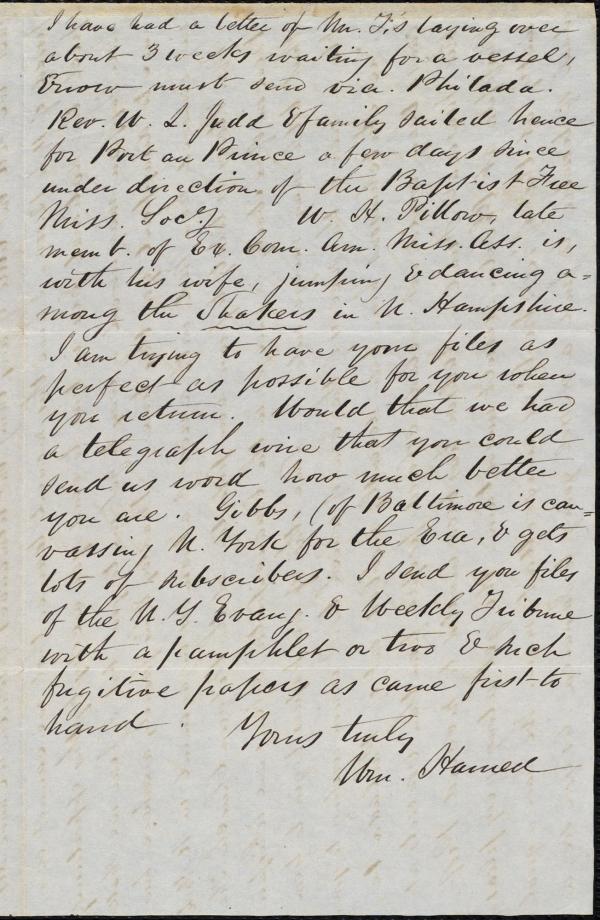 I have had a letter of Mr. T,'s laying over
about 3 weeks waiting for a vessel,
& now must send via. Philada.
Rev. W. L. Judd & family sailed hence
for Port au Prince a few days since
under direction of the Baptist Free
Miss. Socy W. H. Pillow, late
memb. of Ex. Com. Am. Miss. Ass. is,
with his wife, jumping & dancing a=
mong the Shakers in N. Hampshire.
I am trying to have your files as
perfect as possible for you when
you return. Would that we had
a telegraph wire that you could
send us word how much better
you are. Gibbs, (of Baltimore is can=
vassing N. York for the Era, & gets
lots of subscribers. I send you files
of the N. Y. Evang. & Weekly Tribune
with a pamphlet or two & such
fugitive papers as came first to
hand. Yours truly
Wm. Harned